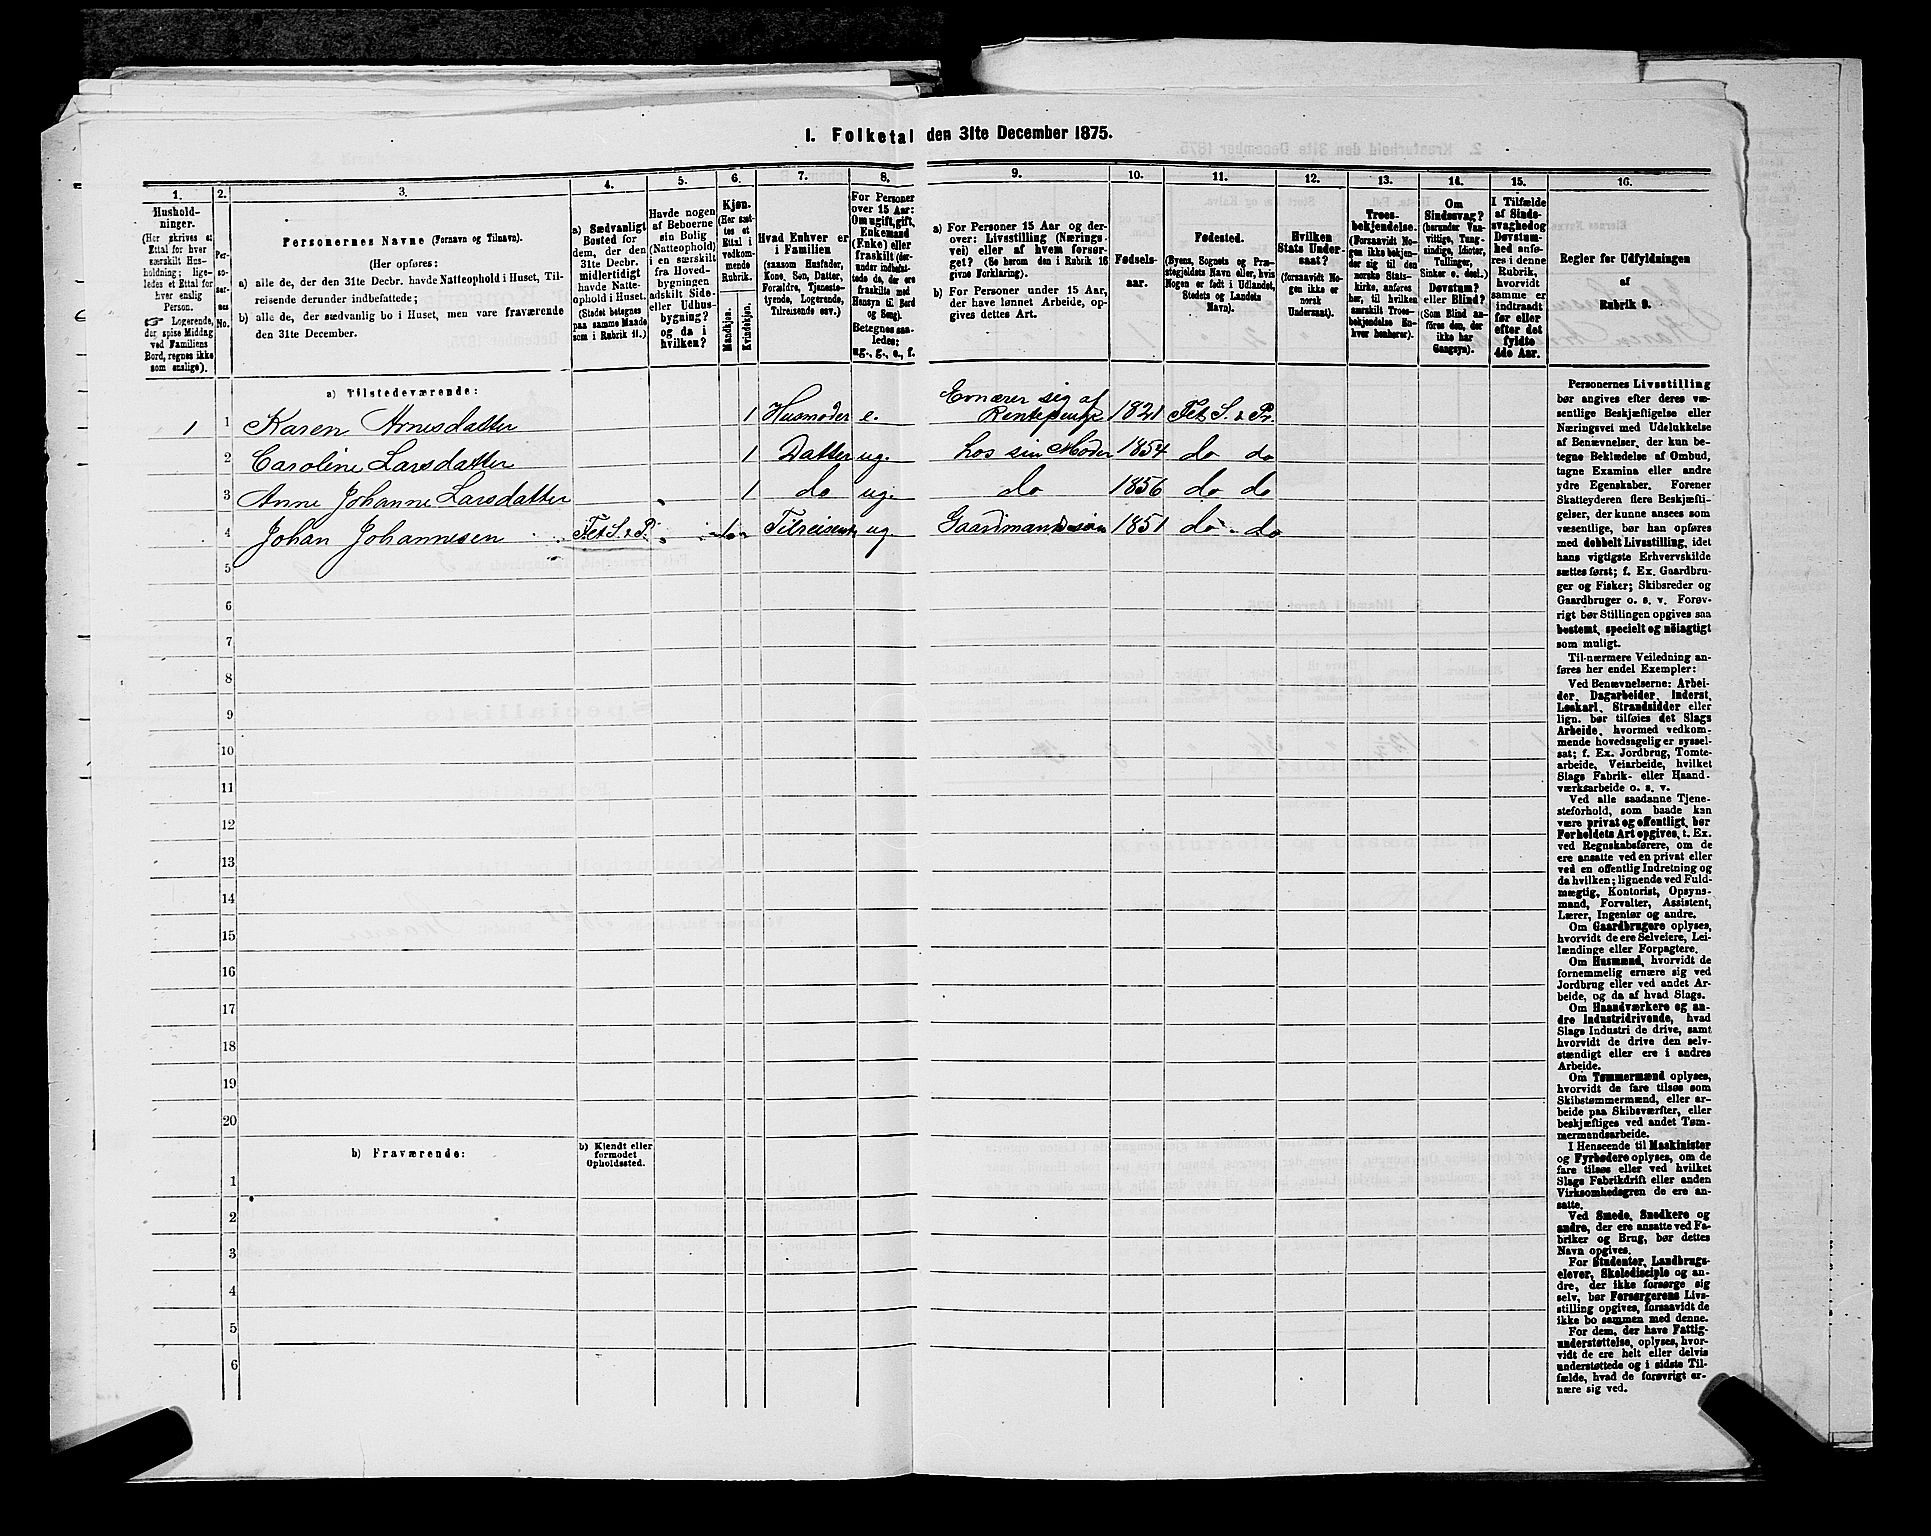 1. Folketal den 31te December 1875.
1.
2.
3.
4.
5.
6.
7.
8.
9.
10.
11.
12.
13.
14.
15.
16.
Hushold-
ninger.
(Her skrives et
Ettal for hver
særskilt Hus-
holdning; lige-
ledes et Ettal for
hver enslig
Person.
☞ Logerende,
der spise Middag
ved Familiens
Bord, regnes ikke
som enslige).
Per-
so-
ner-
nes
No.
Personernes Navne (Fornavn og Tilnavn).
(Her opføres:
a) alle de, der den 31te Decbr. havde Natteophold i Huset, Til-
reisende derunder indbefattede;
b) alle de, der sædvanlig bo i Huset, men vare fraværende
den 31te December.
a) Sædvanligt
Bosted for
dem, der den
31te Decbr.
midlertidigt
havde Natte-
ophold i Huset.
(Stedet betegnes
paa samme Maade
som i Rubrik 11.)
Havde nogen
af Beboerne
sin Bolig
(Natteophold)
i en særskilt
fra Hoved-
bygningen
adskilt Side-
eller Udhus-
bygning?
og da i
hvilken?
Kjøn.
(Her sæt-
tes et
Ettal i
vedkom-
mende
Rubrik.
Mandkjøn.
Kvindekjøn.
Hvad Enhver er
i Familien
(saasom Husfader,
Kone, Søn, Datter,
Forældre, Tjeneste-
tyende, Logerende,
Tilreisende osv.).
For Personer
over 15 Aar:
Om ugift, gift,
Enkemand
(Enke) eller
fraskilt (der-
under indbefat-
tede de, der ere
fraskilte med
Hensyn til Bord
og Seng).
Betegnes saa-
ledes:
ug., g., e., f.
a) For Personer 15 Aar og der-
over: Livsstilling (Nærings-
vei) eller af hvem forsør-
get? (Se herom den i Rubrik 16
givne Forklaring).
b) For Personer under 15 Aar,
der have lønnet Arbeide, op-
gives dettes Art.
Fødsels-
aar.
Fødested.
(Byens, Sognets og Præ-
stegjeldets Navn eller, hvis
Nogen er født i Udlandet,
Stedets og Landets
Navn).
Hvilken
Stats Under-
saat?
(forsaavidt No-
gen ikke er
norsk
Undersaat).
Troes-
bekjendelse.
(Forsaavidt No-
gen ikke bekjen-
der sig til den
norske Stats-
kirke, anføres
her, til hvilken
særskilt Troes-
bekjendelse En-
hver henhører).
Om
Sindssvag?
(herunder Van-
vittige, Tung-
sindige, Idioter,
Tullinger,
Sinker o. desl.)
Døvstum?
eller Blind?
(Som Blind an-
føres den, der
ikke har
Gangsyn).
I Tilfælde
af Sinds-
svaghed og
Døvstum-
hed anfø-
res i denne
Rubrik,
hvorvidt
samme er
indtraadt
før eller
efter det
fyldte
4de Aar.
Regler for Udfyldningen
af
Rubrik 9.
a) Tilstedeværende:
1 1 Karen Arnesdatter 1 Husmoder e. Ernærer sig af Rentepenge 1821 Fet S. & Pr.
2 Caroline Larsdatter 1 Datter ug. hos sin Moder 1854 do do
3 Anne Johanne Larsdatter 1 do ug. do 1856 do do
4 Johan Johannesen Fet S. & P. 1 Tilreisende ug. Gaardmandssøn 1851 do do
5
6
7
8
9
10
11
12
13
14
15
16
17
18
19
20
b) Fraværende:
b) Kjendt eller
formodet
Opholdssted.
1
2
3
4
5
6
Personernes Livsstilling
bør angives efter deres væ-
sentlige Beskjæftigelse eller
Næringsvei med Udelukkelse
af Benævnelser, der kun be-
tegne Beklædelse af Ombud,
tagne Examina eller andre
ydre Egenskaber. Forener
Skatteyderen flere Beskjæfti-
gelser, der kunne ansees som
væsentlige, bør han opføres
med dobbelt Livsstilling, idet
hans vigtigste Erhvervskilde
sættes først; f. Ex. Gaardbru-
ger og Fisker; Skibsreder og
Gaardbruger o. s. v. Forøv-
rigt bør Stillingen opgives saa
bestemt, specielt og nöiagtigt
som muligt.
Til nærmere Veiledning an-
føres her endel Exempler:
Ved Benævnelserne: Arbei-
der, Dagarbeider, Inderst,
Løskarl, Strandsidder eller
lign. bør tilføies det Slags
Arbeide, hvormed vedkom-
mende hovedsagelig er syssel-
sat; f. Ex. Jordbrug, Tomte-
arbeide, Veiarbeide, hvilket
Slags Fabrik- eller Haand-
værksarbeide o. s. v.
Ved alle saadanne Tjene-
steforhold, som baade kan
være privat og offentligt, bør
Forholdets Art opgives, t. Ex.
ved Regnskabsførere, om de
ere ansatte ved en privat eller
ved en offentlig Indretning og
da hvilken; lignende ved Fuld-
mægtig, Kontorist, Opsyns-
mand, Forvalter, Assistent,
Lærer, Ingeniør og andre.
Om Gaardbrugere oplyses,
hvorvidt de ere Selveiere, Lei-
lændinge eller Forpagtere.
Om Husmænd, hvorvidt de
fornemmelig ernære sig ved
Jordbrug eller ved andet Ar-
beide, og da af hvad Slags.
Om Haandværkere og an-
dre Industridrivende, hvad
Slags Industri de drive, samt
hvorvidt de drive den selv-
stændigt eller ere i andres
Arbeide.
Om Tømmermænd oplyses,
hvorvidt de fare tilsøs som
Skibstømmermænd, eller ar-
beide paa Skibsværfter, eller
beskjæftiges ved andet Tøm-
mermandsarbeide.
I Henseende til Maskinister
og Fyrbødere oplyses, om de
fare tilsøs eller ved hvilket
Slags Fabrikdrift eller anden
Virksomhedsgren de ere an-
satte.
Ved Smede, Snedkere og
andre, der ere ansatte ved Fa-
briker og Brug, bør dettes
Navn opgives.
For Studenter, Landbrugs-
elever, Skoledisciple og an-
dre, der ikke forsørge sig
selv, bør Forsørgerens Livs-
stilling opgives, forsaavidt de
ikke bo sammen med denne.
For dem, der have Fattig-
understøttelse, oplyses, hvor-
vidt de ere helt eller delvis
understøttede og i sidste Til-
fælde, hvad de forøvrigt er-
nære sig ved.